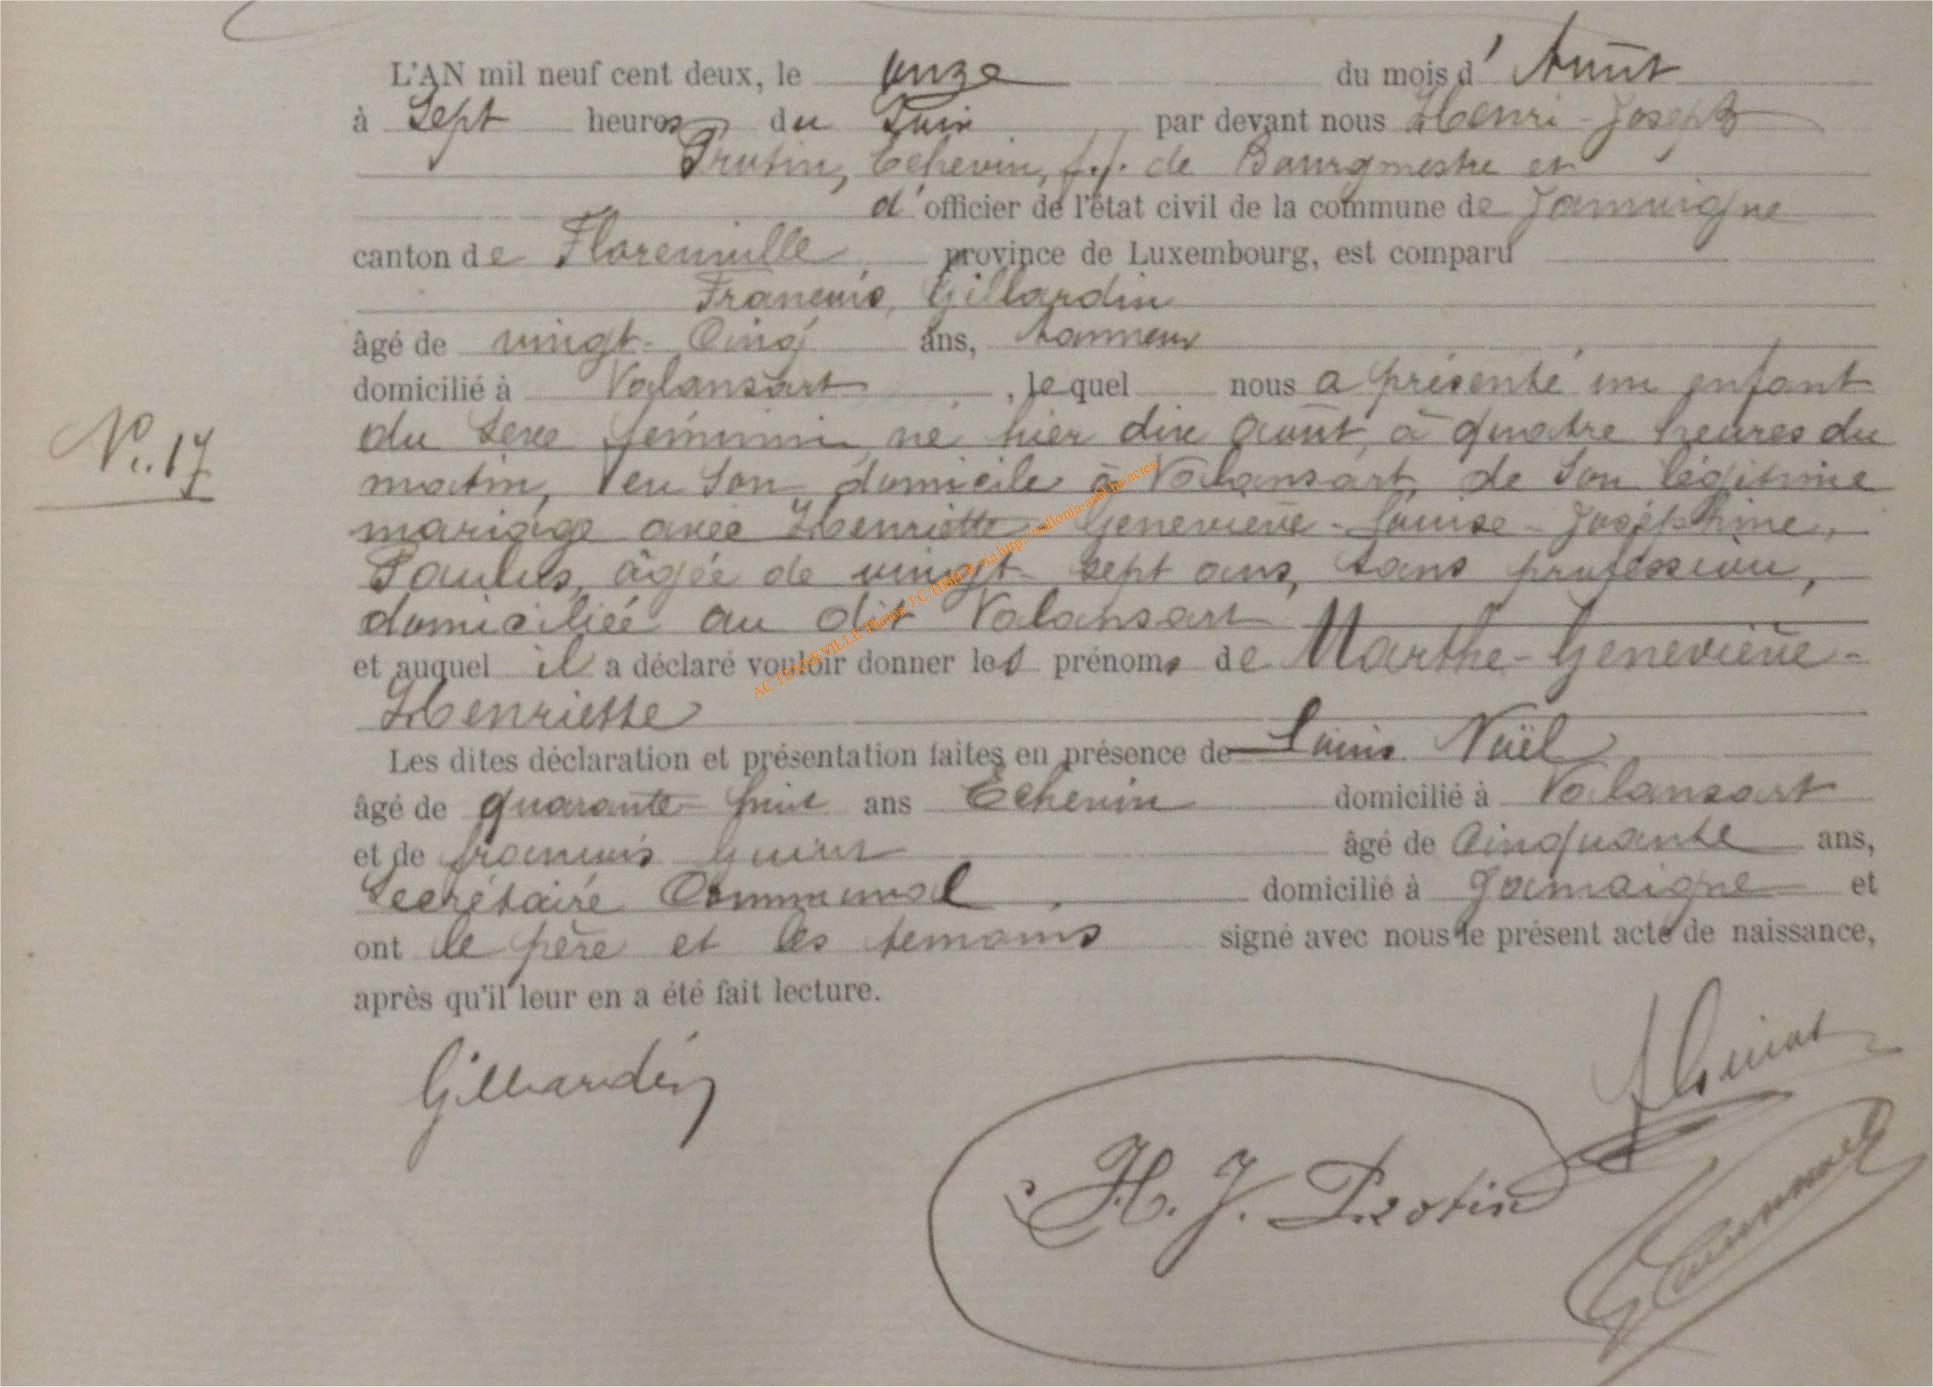 L'AN mil neuf cent deux, le onze du mois d'Août
à Sept heures du Soir par devant nous Henri-Joseph
Protin, Echevin, f.f. de Bourgmestre et
d'officier de l'état civil de la commune de Jamoigne
canton de Florenville, province de Luxembourg, est comparu
François, Gillardin
âgé de vingt-Cinq ans, tanneur
domicilié à Valansart, lequel nous a présenté un enfant
N°.17
du Sexe féminin, né hier dix août, à quatre heures du
matin, en Son domicile à Valansart, de Son légitime
mariage avec Henriette-Geneviève-Louise-Joséphine,
Paulus, âgée de vingt-sept ans, sans profession,
domiciliée au dit Valansart
et auquel il a déclaré vouloir donner les prénoms de Marthe-Geneviève-
Henriette
Les dites déclaration et présentation faites en présence de Louis Noël
âgé de quarante-huit ans Echevin domicilié à Valansart
et de françois Guiot âgé de Cinquante ans,
Secrétaire Communal domicilié à Jamoigne et
ont le père et les témoins signé avec nous le présent acte de naissance,
après qu'il leur en a été fait lecture.
Gillardin
H. J. Protin